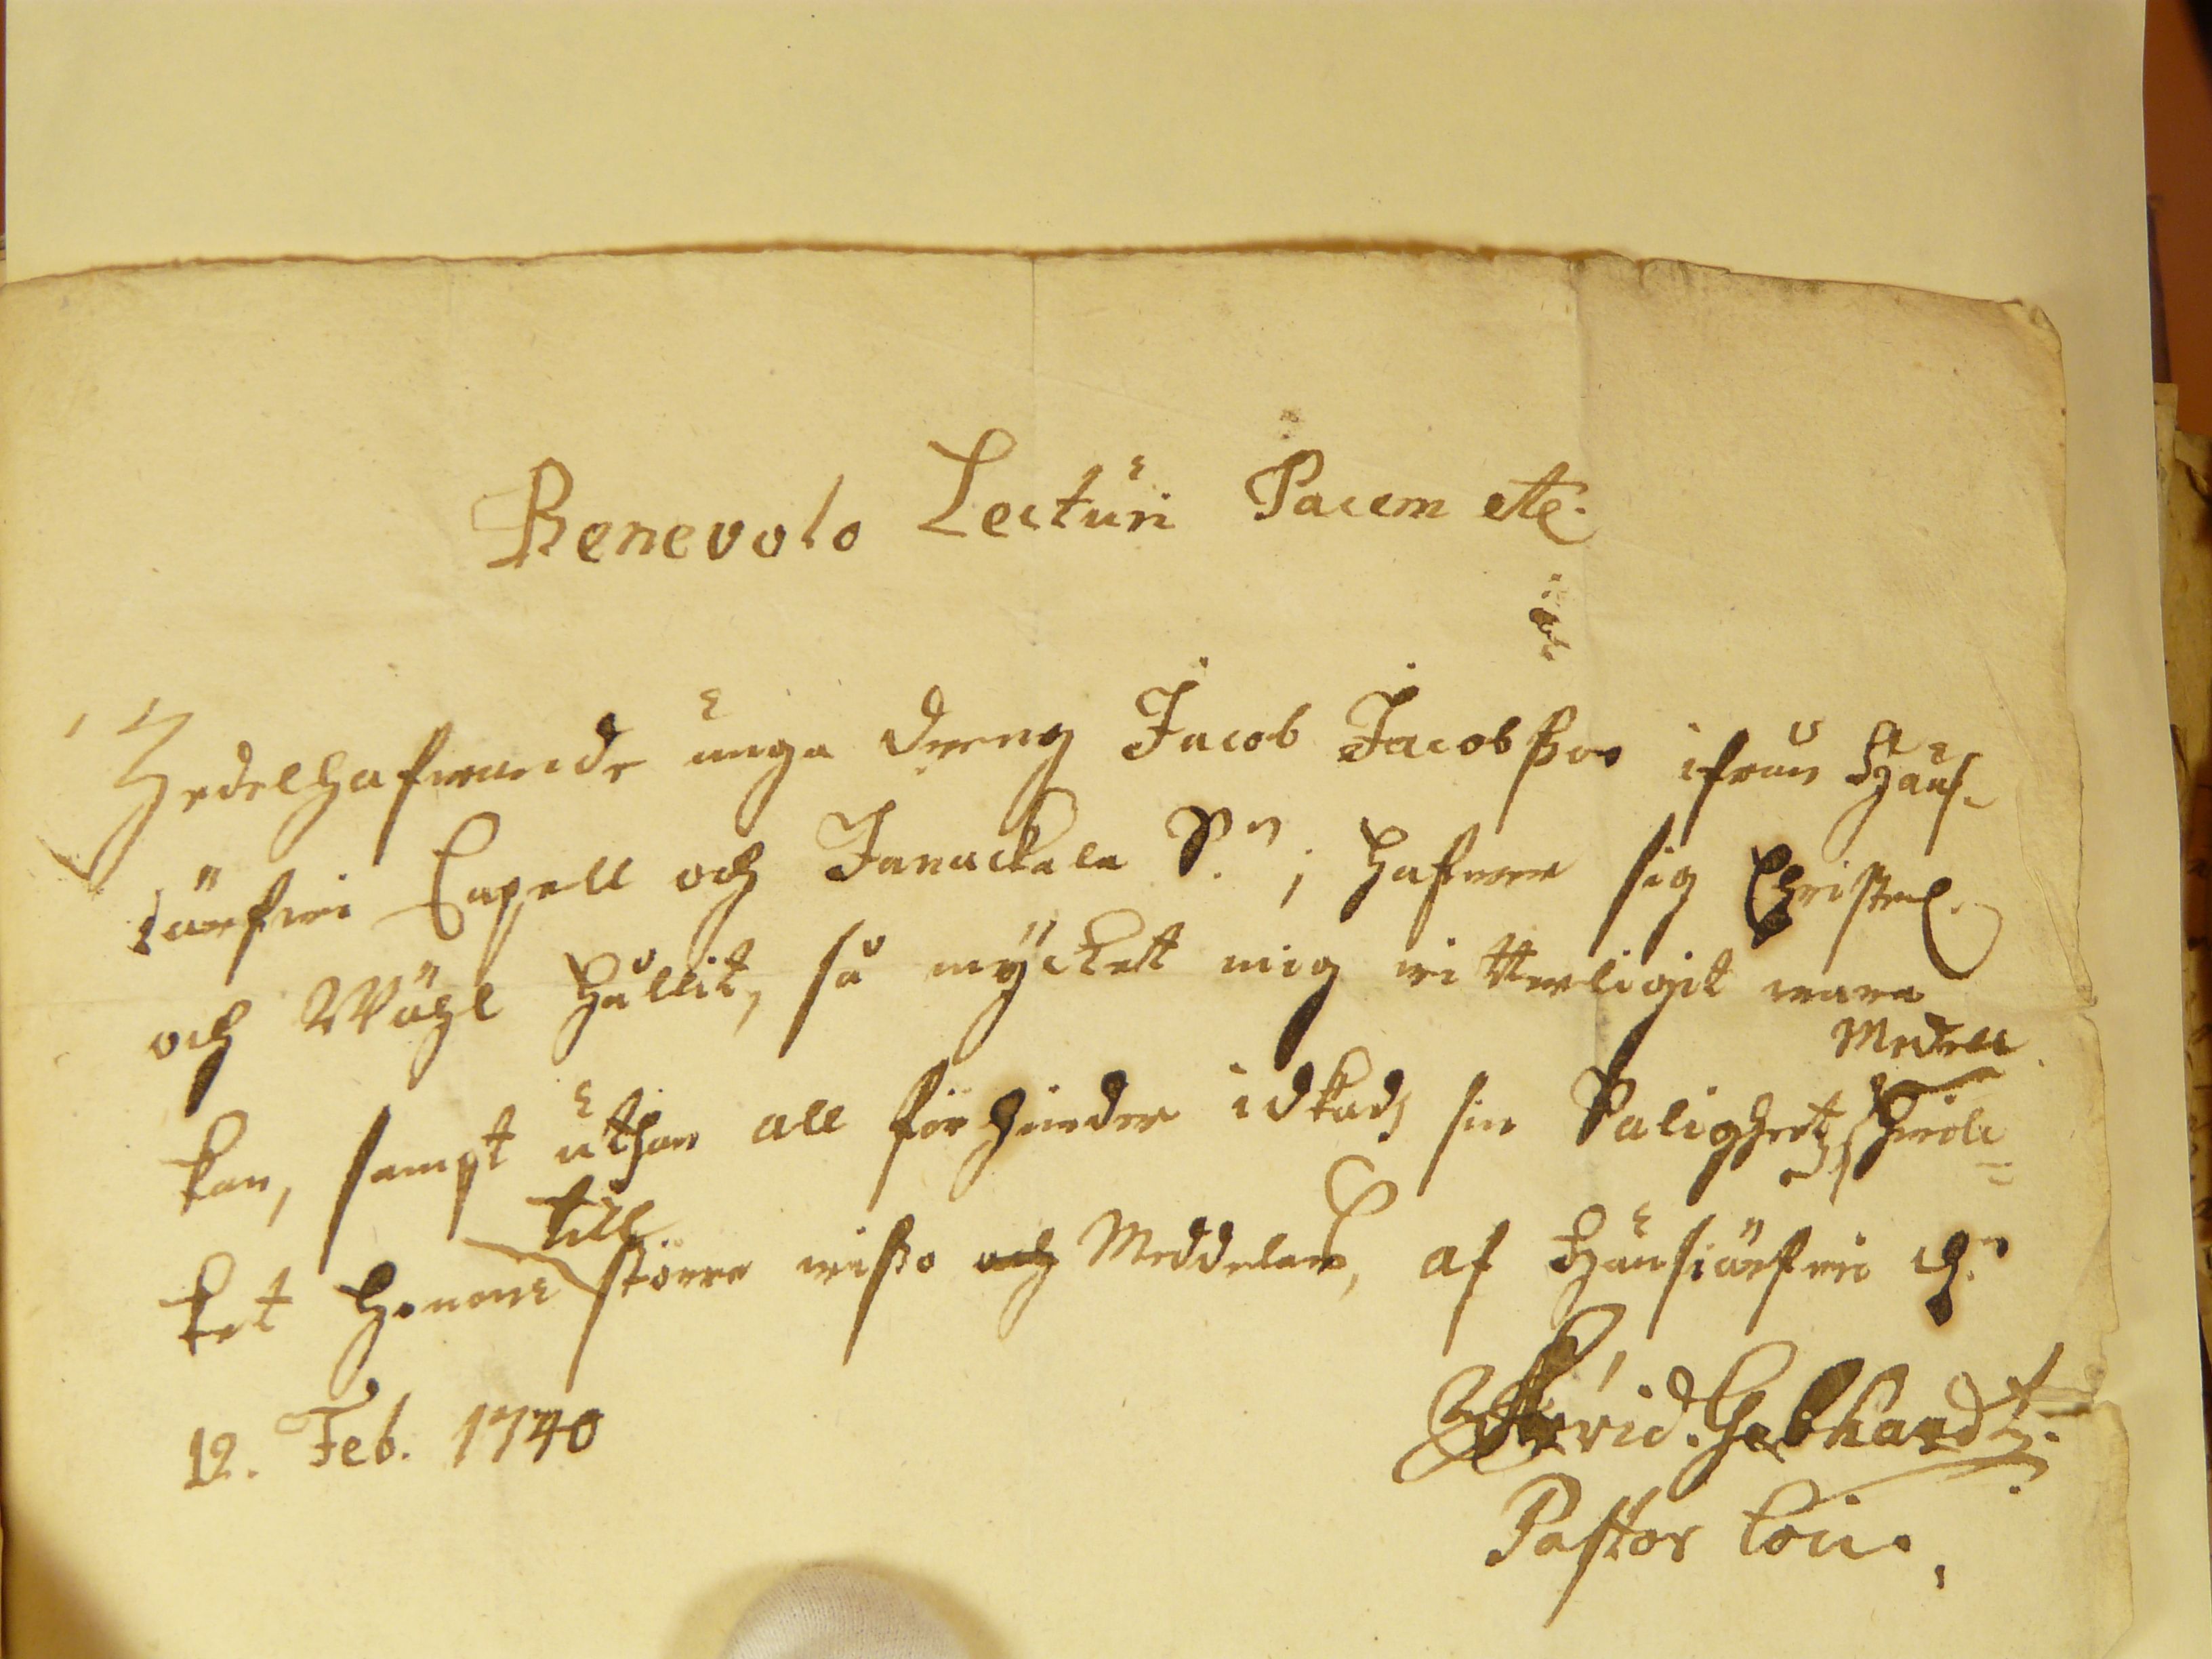 Benevolo Lecturi Pacem etc.
Zedelhafwande unga Dreng Jacob Jacobßon ifrån Haus-
järfwi Capell och Janackala S:n, hafwer sig Christel.
och Wähl hållit, så mÿckett mig witterligit wara
kan, sampt uthan all förhinder idkadz sin Salighetz Medell
till
ket honom större wißo och Meddelas, af Hausiärfwi
12. Feb. 1740
Arvid. Gebhardt.
Pastor Loci.